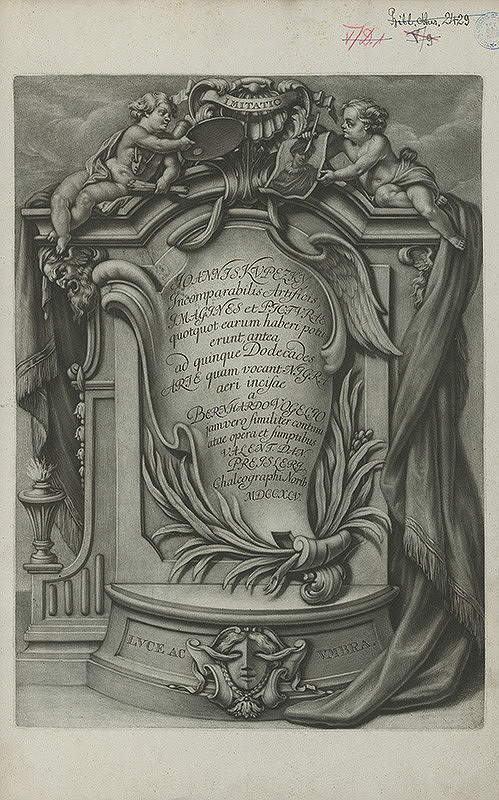 Bibl. Mus. 2429
V/D.1
V/9
IMITATIO
IOANNIS KVPEZKY
Incomparabilis Artificis
IMAGINES et PICTURAE
quotquot earum haberi potu
erunt, antea
ad quinque Dodecades
ARTE quam vocant NIGRA
aeri incisae
a
BERNHARDO VOGELIO
jam vero similiter continu
atae opera et sumptibus
VALENT. DAN.
PREISLERI,
Chalcographi Norib.
MDCCXLV.
LVCE AC VMBRA.